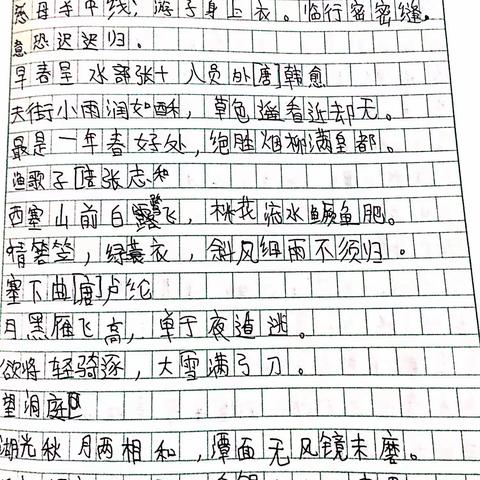 慈母手中线，游子身上衣。临行密密缝，
意恐迟迟归。
早春呈水部张十八员外[唐]韩愈
天街小雨润如酥，草色遥看近却无。
最是一年春好处，绝胜烟柳满皇都。
渔歌子[唐]张志和
西塞山前白鹭飞，桃花流水鳜鱼肥。
青箬笠，绿蓑衣，斜风细雨不须归。
塞下曲[唐]卢纶
月黑雁飞高，单于夜遁逃。
欲将轻骑逐，大雪满弓刀。
望洞庭
湖光秋月两相和，潭面无风镜未磨。